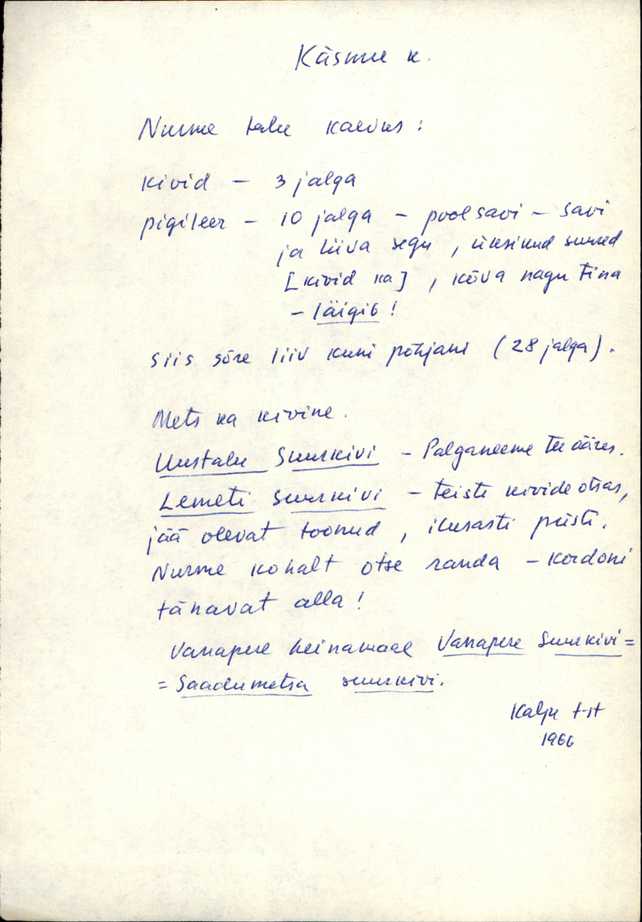 Käsmu k.
Nurme talu kaevus:
kivid - 3 jalga
pigileer - 10 jalga - poolsavi - savi
ja liiva segu, üksikud suured
[kivid ka], kõva nagu tina
- läigib!
siis sõre liiv kuni põhjani (28 jalga).
Mets ka kivine.
Uustalu Suurkivi - Palganeeme tee ääres.
Lemeti Suurkivi - teiste kivide otsas,
jää olevat toonud, ilusasti püsti.
Nurme kohalt otse randa - kordoni
tänavat alla!
Vanapere heinamaal Vanapere Suurkivi =
= Saadumetsa suurkivi.
Kalju
1966